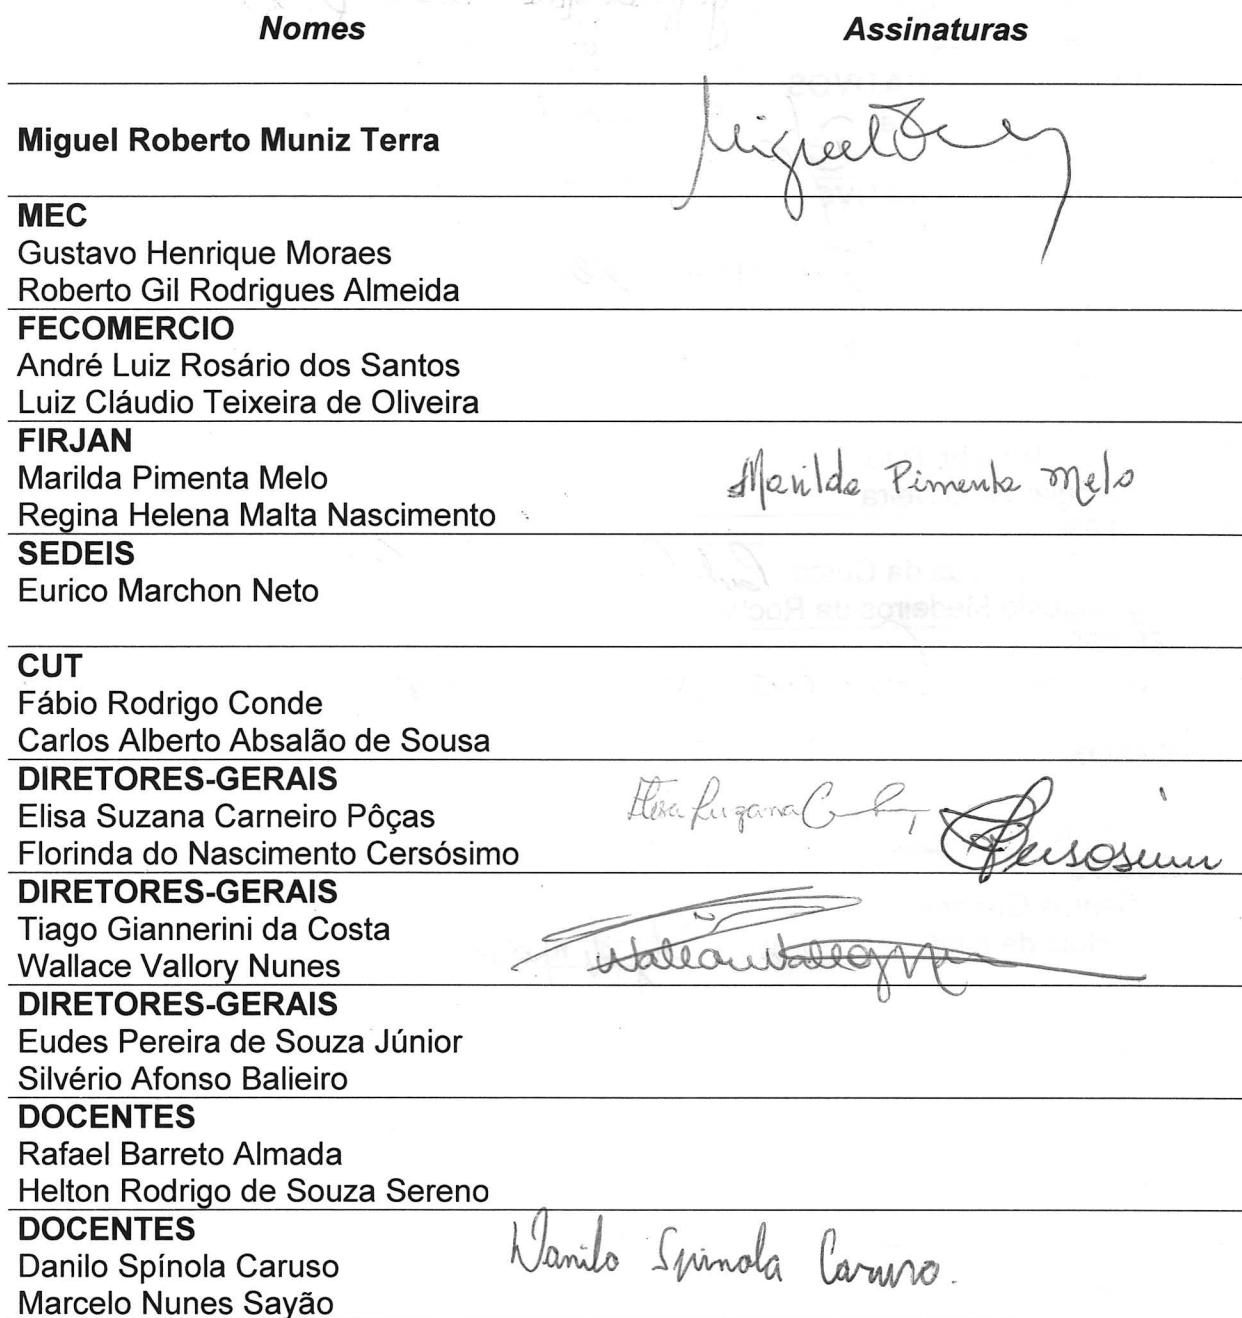 Nomes Assinaturas
Miguel Roberto Muniz Terra Miguel
MEC
Gustavo Henrique Moraes
Roberto Gil Rodrigues Almeida
FECOMERCIO
André Luiz Rosário dos Santos
Luiz Cláudio Teixeira de Oliveira
FIRJAN
Marilda Pimenta Melo Marilda Pimenta Melo
Regina Helena Malta Nascimento
SEDEIS
Eurico Marchon Neto
CUT
Fábio Rodrigo Conde
Carlos Alberto Absalão de Sousa
DIRETORES-GERAIS
Elisa Suzana Carneiro Pôças Elisa Suzana
Florinda do Nascimento Cersósimo
DIRETORES-GERAIS
Tiago Giannerini da Costa
Wallace Vallory Nunes
DIRETORES-GERAIS
Eudes Pereira de Souza Júnior
Silvério Afonso Balieiro
DOCENTES
Rafael Barreto Almada
Helton Rodrigo de Souza Sereno
DOCENTES
Danilo Spínola Caruso Danilo Spinola Caruso.
Marcelo Nunes Sayão